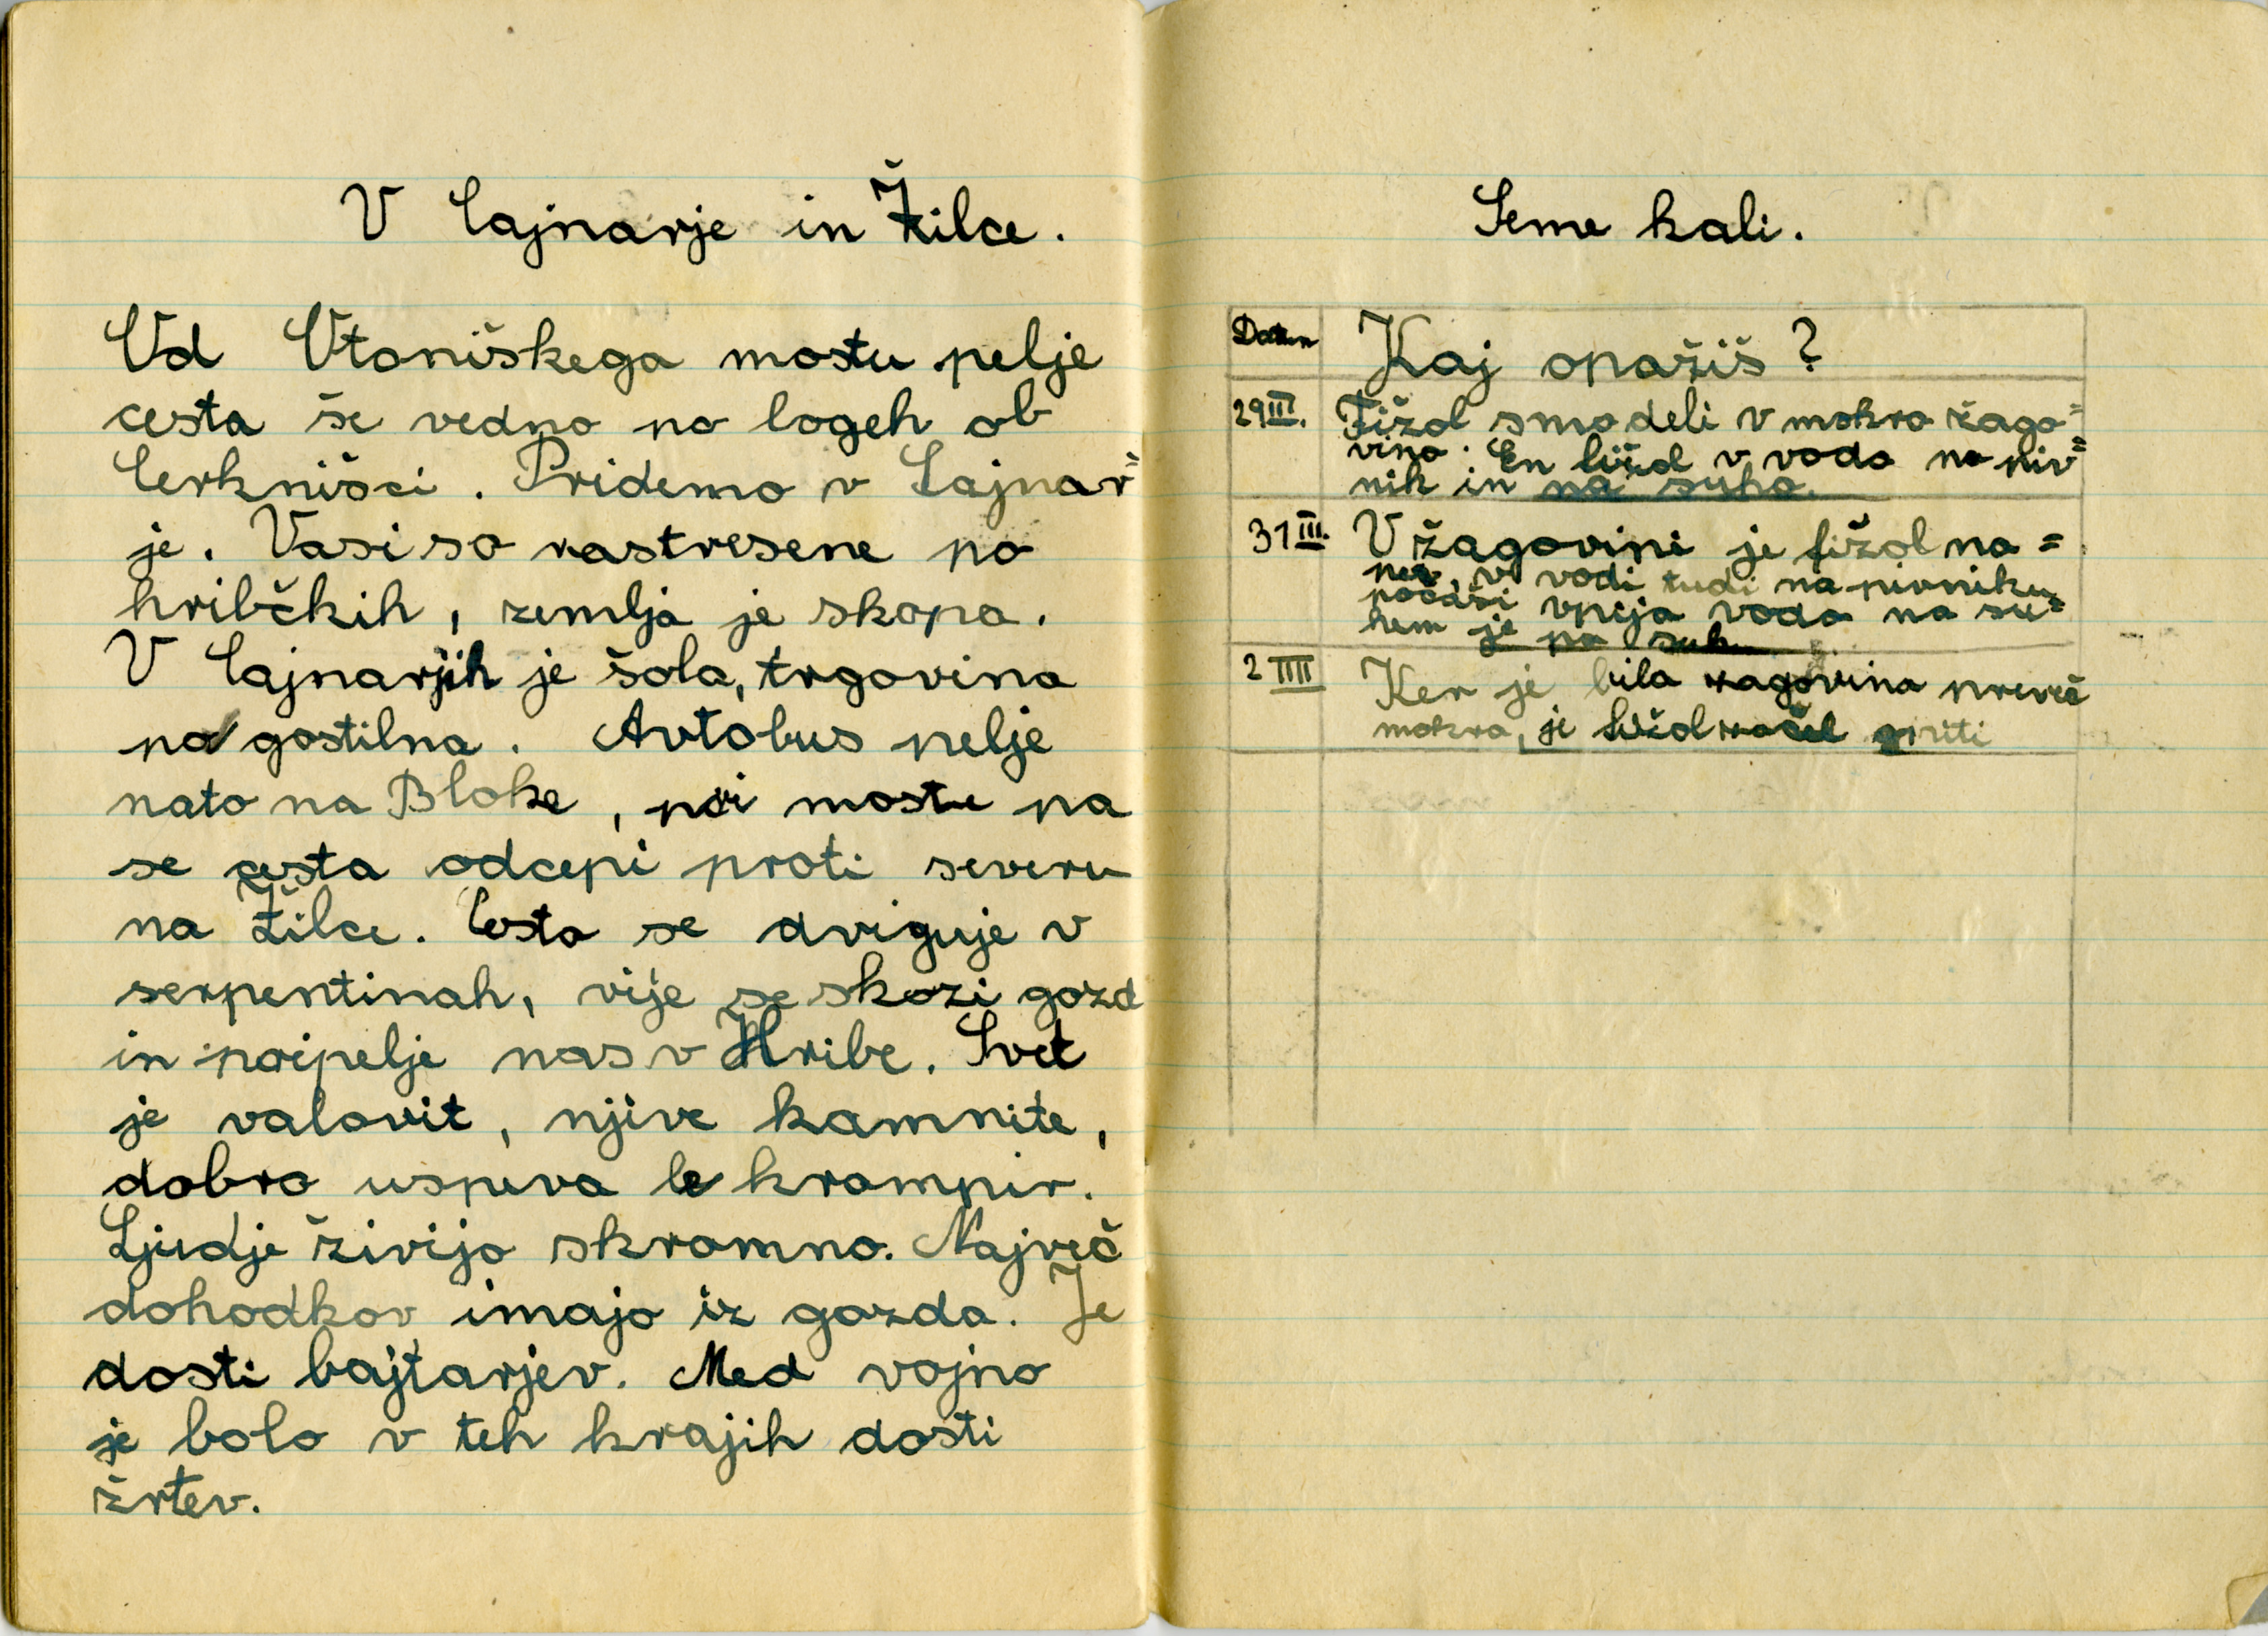 V Cajnarje in Žilce.
Od Otoniškega mostu pelje
cesta še vedno po logeh ob
Cerkniščci. Pridemo v Cajnar=
je. Vasi so rastresene po
hribčkih, zemlja je skopa.
V Cajnarjih je šola, trgovina
pa gostilna. Avtobus pelje
nato na Bloke, pri mostu pa
se cesta odcepi proti severu
na Žilce. Cesta se dviguje v
serpentinah, vije se skozi gozd
in pripelje nas v Hribe. Svet
je valovit, njive kamnite,
dobro uspeva le krompir.
Ljudje živijo skromno. Največ
dohodkov imajo iz gozda. Je
dosti bajtarjev. Med vojno
je bolo v teh krajih dosti
žrtev.
Seme kali.
Datum Kaj opažiš?
29 III. Fižol smo deli v mokro žago=
vino. En fižol v vodo na piv=
nik in na suho.
31 III. V žagovini je fižol na=
pet, v vodi tudi na pivniku
počasi vpija vodo na su=
hem je pa suh
2 IIII Ker je bila žagovina preveč
mokra, je fižol začel gniti